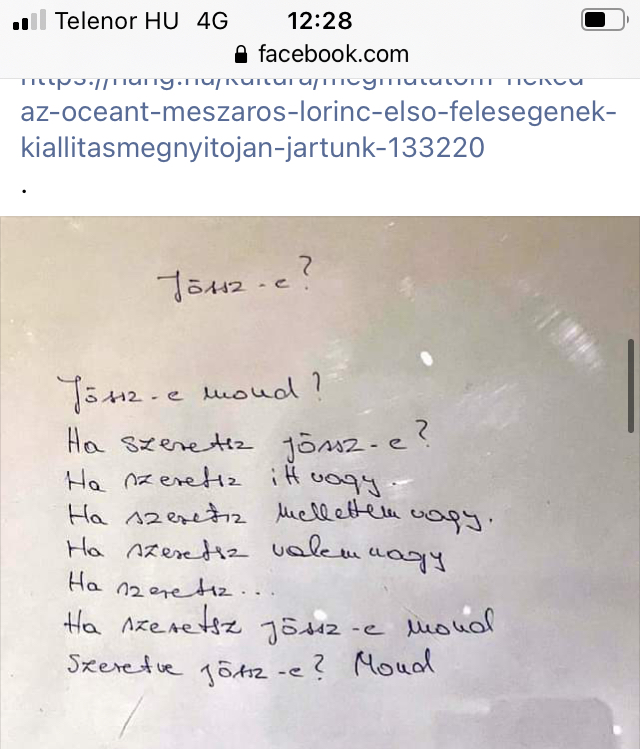 Telenor HU 4G 12:28
facebook.com
https://hang.hu/kultura/megmutatom-neked-
az-oceant-meszaros-lorinc-elso-felesegenek-
kiallitasmegnyitojan-jartunk-133220
.
Jössz-e?
Jössz-e mond?
Ha szeretsz jössz-e?
Ha szeretsz itt vagy.
Ha szeretsz mellettem vagy.
Ha szeretsz velem vagy
Ha szeretsz...
Ha szeretsz jössz-e mond
Szeretve jössz-e? Mond